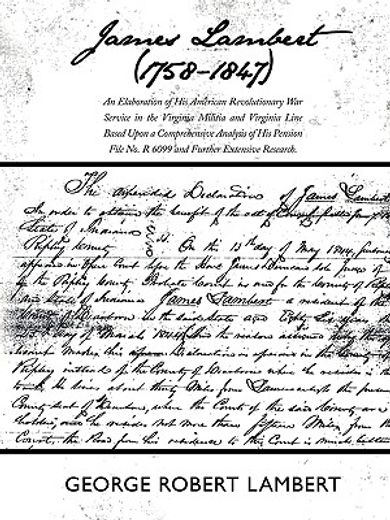 James Lambert
(1758-1847)
An Elaboration of His American Revolutionary War
Service in the Virginia Militia and Virginia Line
Based Upon a Comprehensive Analysis of His Pension
File No. R 6099 and Further Extensive Research.
The amended Declaration of James Lambert
In order to obtain the benefit of the act of
State of Indiana
Ripley County } SS. On the 13th day of May 1844,
appeared in Open Court before the Hon. James sole Judge of
the Ripley County Probate Court in and for the County of
and State of Indiana James Lambert a resident of the
County of Dearborn in the said State aged Eighty Six years
day of March 1844
his Declaration in
Ripley instead of the County of Dearborn where he resides
He lives about thirty Miles from Lawrenceburgh the present
County seat of Dearborn, where the Courts of the said County are
holden, and he resides not more than fifteen Miles from
Court, the Road from his residence to the Court is much better
GEORGE ROBERT LAMBERT